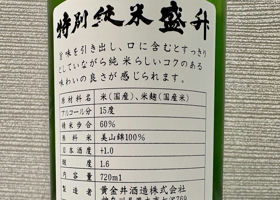 特別純米盛升
旨味を引き出し、口に含むとすっきり
としていながら純米らしいコクのある
味わいの良さが感じられます。
原材料名 米(国産)、米麹(国産米)
アルコール分 15度
精米歩合 60%
原料米 美山錦100%
日本酒度 +1.0
酸度 1.6
内容量 720ml
製造者 黄金井酒造株式会社